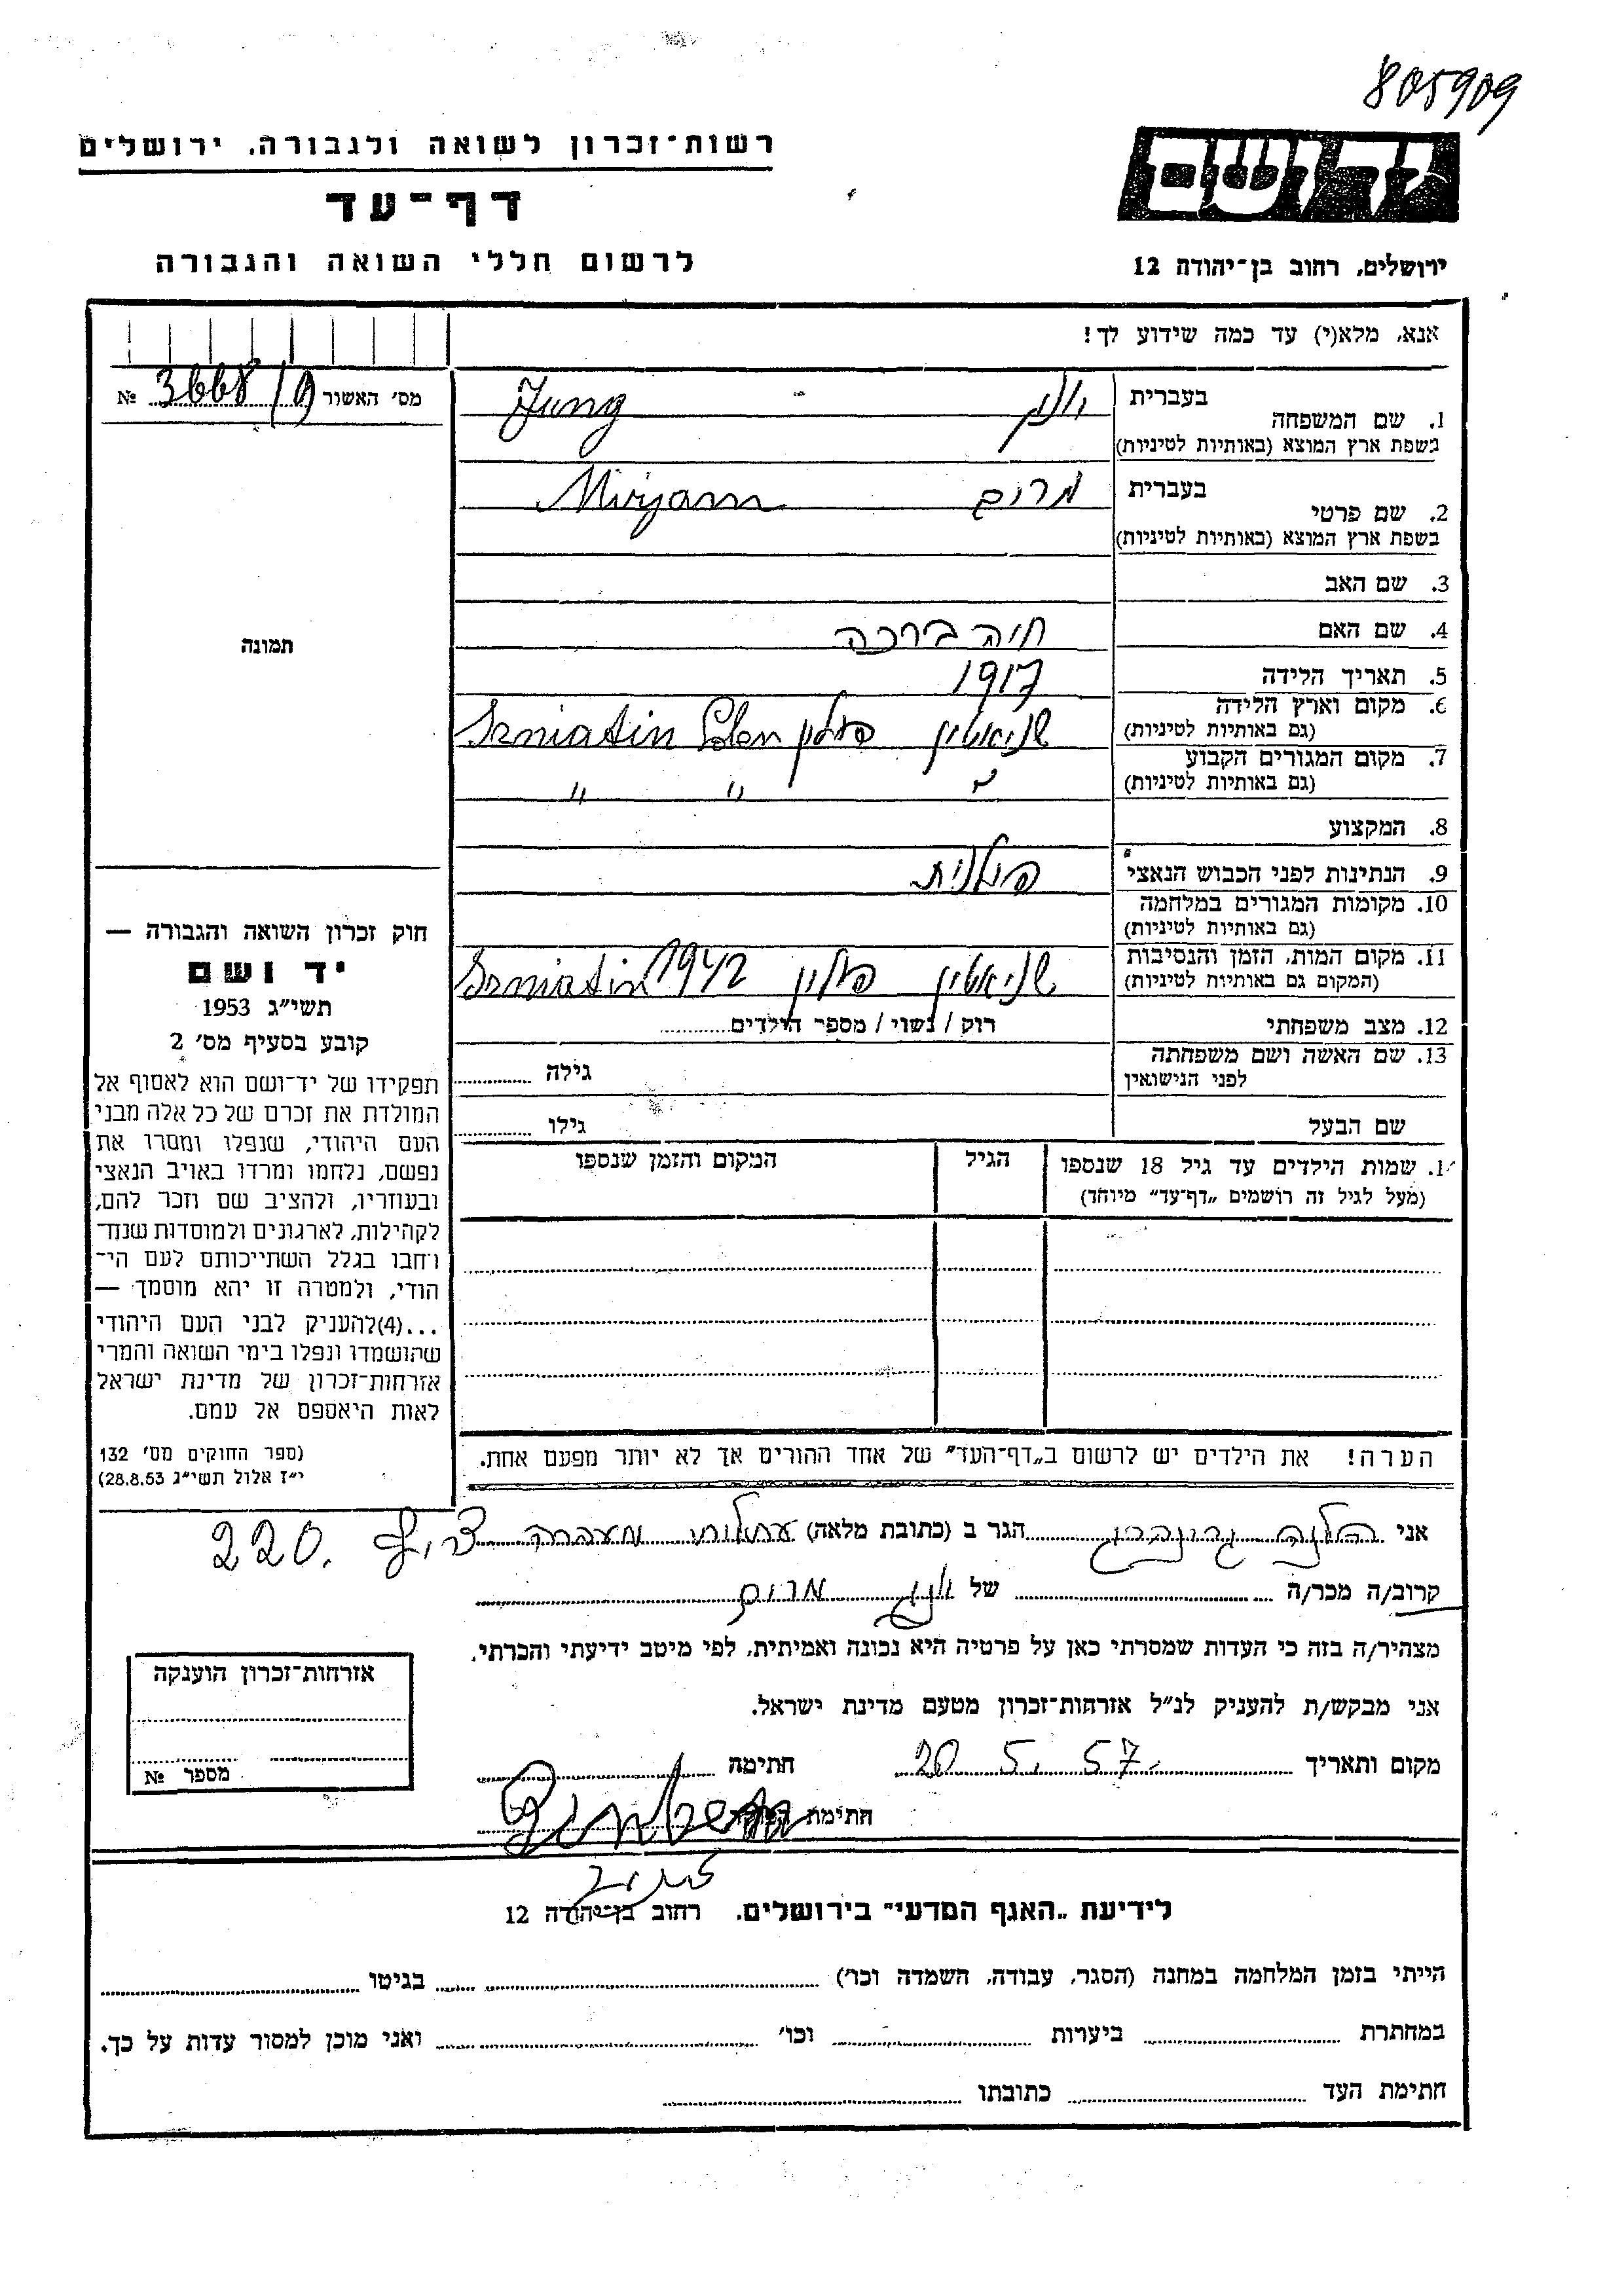 805909
רשות־זכרון לשואה ולגבורה. ירושלים
דף־עד
לרשום חללי השואה והגבורה
ידושם
ירושלים, רחוב בן־יהודה 12
אנא, מלא(י) עד כמה שידוע לך!
מס׳ האשור 3668/9 №
בעברית
1. שם המשפחה
יונג Jung
בשפת ארץ המוצא (באותיות לטיניות)
בעברית
2. שם פרטי
מרים Mirjam
בשפת ארץ המוצא (באותיות לטיניות)
3. שם האב
4. שם האם חיה ברכה
תמונה
5. תאריך הלידה 1917
6. מקום וארץ הלידה
(גם באותיות לטיניות)
שניאטין פולין Sniatin Polen
7. מקום המגורים הקבוע
(גם באותיות לטיניות)
" " "
8. המקצוע
9. הנתינות לפני הכבוש הנאצי פולנית
10. מקומות המגורים במלחמה
(גם באותיות לטיניות)
11. מקום המות, הזמן והנסיבות
(המקום גם באותיות לטיניות)
שניאטין פולין 1942 Sniatin
12. מצב משפחתי רוק / נשוי / מספר הילדים
13. שם האשה ושם משפחתה
לפני הנישואין
גילה
שם הבעל גילו
חוק זכרון השואה והגבורה —
יד ושם
תשי״ג 1953
קובע בסעיף מס׳ 2
תפקידו של יד־ושם הוא לאסוף אל
המולדת את זכרם של כל אלה מבני
העם היהודי, שנפלו ומסרו את
נפשם, נלחמו ומרדו באויב הנאצי
ובעוזריו, ולהציב שם וזכר להם,
לקהילות, לארגונים ולמוסדות שנח־
רחבו בגלל השתייכותם לעם הי־
הודי, ולמטרה זו יהא מוסמך —
...(4)להעניק לבני העם היהודי
שהושמדו ונפלו בימי השואה והמרי
אזרחות־זכרון של מדינת ישראל
לאות היאספם אל עמם.
(ספר החוקים מס׳ 132
י״ז אלול תשי״ג 28.8.53)
1. שמות הילדים עד גיל 18 שנספו
(מעל לגיל זה רושמים „דף־עד״ מיוחד)
הגיל
המקום והזמן שנספו
הערה! את הילדים יש לרשום ב„דף־העד״ של אחד ההורים אך לא יותר מפעם אחת.
אני הלנה גרינברג הגר ב (כתובת מלאה) עתלית מעברה צריף 220.
קרוב/ה מכר/ה של יונג מרים
מצהיר/ה בזה כי העדות שמסרתי כאן על פרטיה היא נכונה ואמיתית, לפי מיטב ידיעתי והכרתי.
אני מבקש/ת להעניק לנ״ל אזרחות־זכרון מטעם מדינת ישראל.
מקום ותאריך 20. 5. 57. חתימה
חתימת
אזרחות־זכרון הוענקה
מספר №
לידיעת „האגף המדעי״ בירושלים. רחוב בן־יהודה 12
הייתי בזמן המלחמה במחנה (הסגר, עבודה, השמדה וכו׳) בגיטו
במחתרת ביערות וכו׳ ואני מוכן למסור עדות על כך.
חתימת העד כתובתו